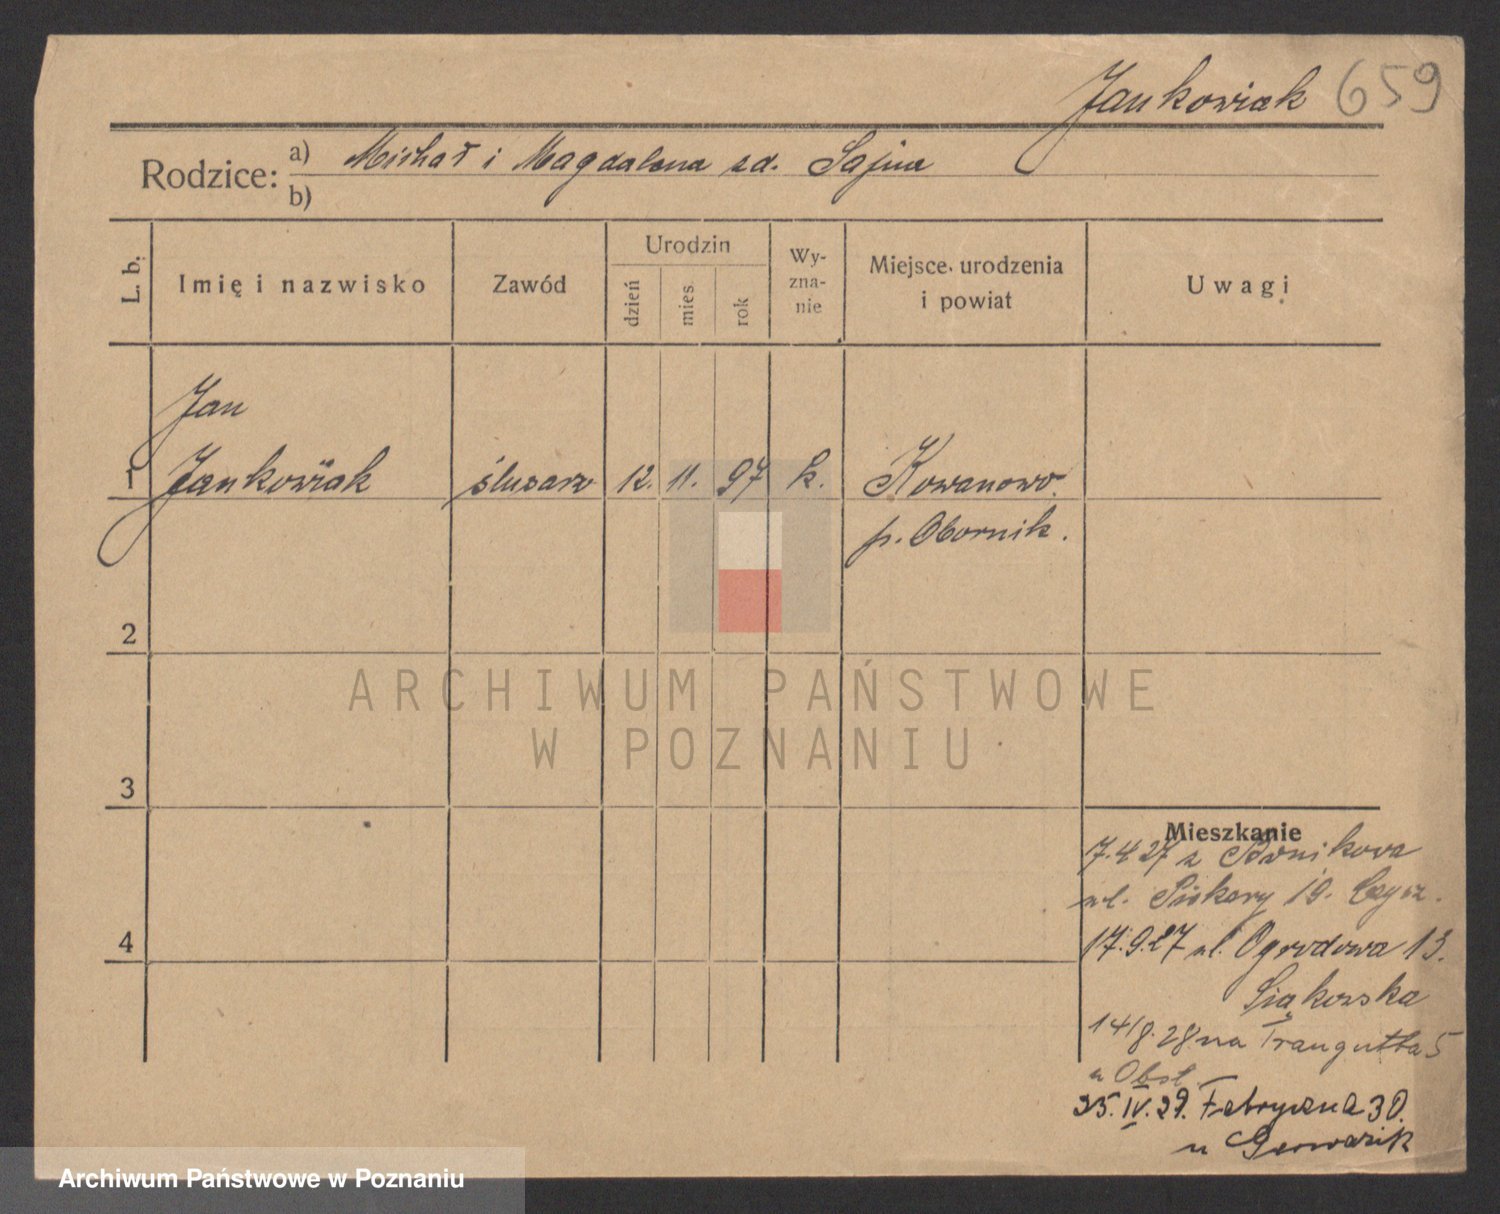 Jankowiak 659
Rodzice: a) Michał i Magdalena zd. Sajna
b)
L. b. Imię i nazwisko Zawód Urodzin dzień mies. rok Wy-zna-nie Miejsce urodzenia i powiat Uwagi
Jan
1 Jankowiak ślusarz 12. 11. 97 k. Kowanowo
p. Obornik.
2
ARCHIWUM PAŃSTWOWE
W POZNANIU
3
Mieszkanie
17.4 27 z
ul. Piekary 19.
4 17.9.27 ul. Ogrodowa 13.
14/8.28 na Traugutta 5
u
25.IV.29. Fabryczna 30.
u
Archiwum Państwowe w Poznaniu